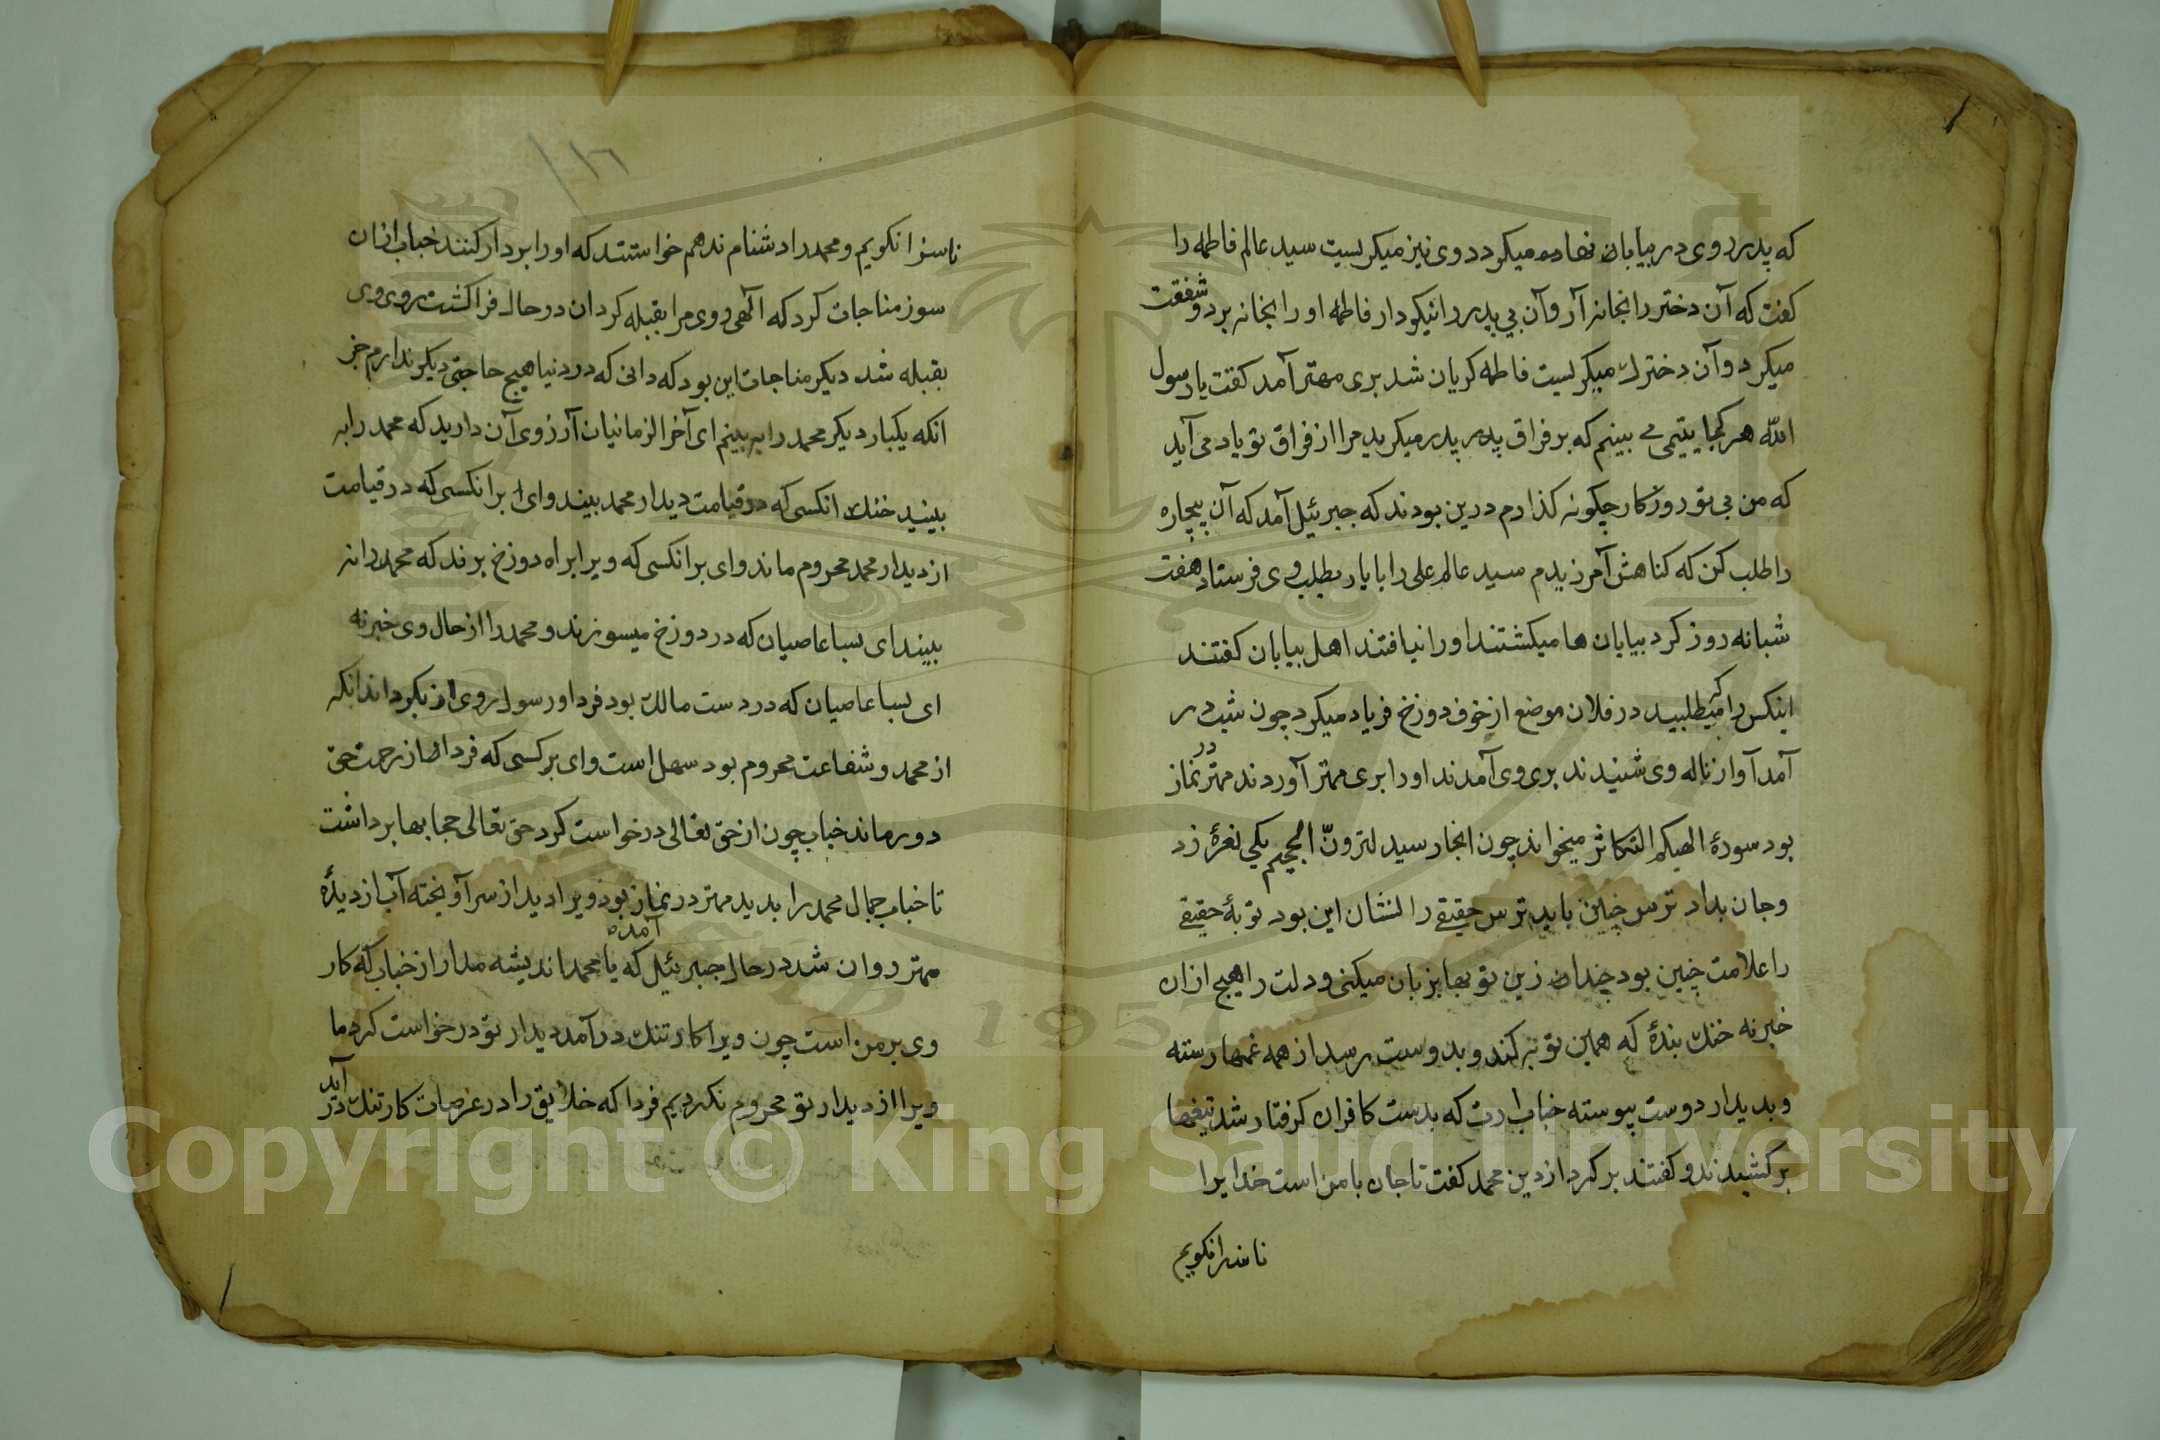 که پدر روی در بیابان نهاده میکرد وی نیز میکریست سید عالم فاطمه را
کفت که آن دختر را بخانه آر و آن بی پدر را نیکو دار فاطمه او را بخانه برد و شفقت
میکرد و آن دخترك میکریست فاطمه کریان شد بری مهتر آمد کفت یا رسول
الله هر کجا یتیمی می بینم که بر فراق پدر میکرید مرا از فراق تو یاد می آید
که من بی تو روزکار چکونه کذارم درین بودند که جبرئیل آمد که آن بیچاره
را طلب کن که کناهش آمرزیدم سید عالم علی را با یار بطلب وی فرستاد هفت
شبانه روز کرد بیابان ها میکشتند او را نیافتند اهل بیابان کفتند
اینکس را که میطلبید در فلان موضع از خوف دوزخ فریاد میکرد چون شب در
آمد آواز ناله وی شنیدند بری وی آمدند او را بری مهتر آوردند مهتر در نماز
بود سورهٔ الهیکم التکاثر میخواند چون انجا رسید لترونّ الجحیم یکی نعرهٔ زد
و جان بداد ترس چنین باید ترس حقیقے را نشان این بود توبهٔ حقیقے
را علامت چنین بود چندان زین توبها بزبان میکنی و دلت را هیچ ازان
خبر نه خنك بندهٔ که همین توبه کند و بدوست رسد از همه غمها رسته
و بدیدار دوست پیوسته خباب ارت که بدست کافران کرفتار شد تیغها
برکشیدند و کفتند برکرد از دین محمد کفت تا جان با من است خدایرا
ناسزا نکویم
۱۱٦
ناسزا نکویم و محمد را دشنام ندهم خواستند که او را بردار کنند خباب ازان
سوز مناجات کرد که آلهی روی مرا بقبله کردان در حال فراکشت روی وی
بقبله شد دیکر مناجات این بود که دانی که در دنیا هیچ حاجتی دیکر ندارم جز
انکه یکبار دیکر محمد را به بینم ای آخر الزمانیان آرزوی آن دارید که محمد را به
بینید خنك انکسی که در قیامت دیدار محمد بیند وای بر انکسی که در قیامت
از دیدار محمد محروم ماند وای بر انکسی که ویرا براه دوزخ برند که محمد را نه
بیند ای بسا عاصیان که در دوزخ میسوزند و محمد را از حال وی خبر نه
ای بسا عاصیان که در دست مالك بود فردا و رسول روی از بکرداند انکه
از محمد و شفاعت محروم بود سهل است وای بر کسی که فردا از رحمت حق
دور ماند خباب چون از حق تعالی درخواست کرد حق تعالی حجابها برداشت
تا خباب جمال محمد را بدید مهتر در نماز بود ویرا دید از سر آویخته آب از دیدهٔ
مهتر روان شد در حال جبرئیل آمده که یا محمد اندیشه مدار از خباب که کار
وی بر من است چون ویرا کار تنك در آمد دیدار تو درخواست کرد ما
ویرا از دیدار تو محروم نکردیم فردا که خلایق را در عرصات کار تنك در آید
Copyright © King Saud University
1957